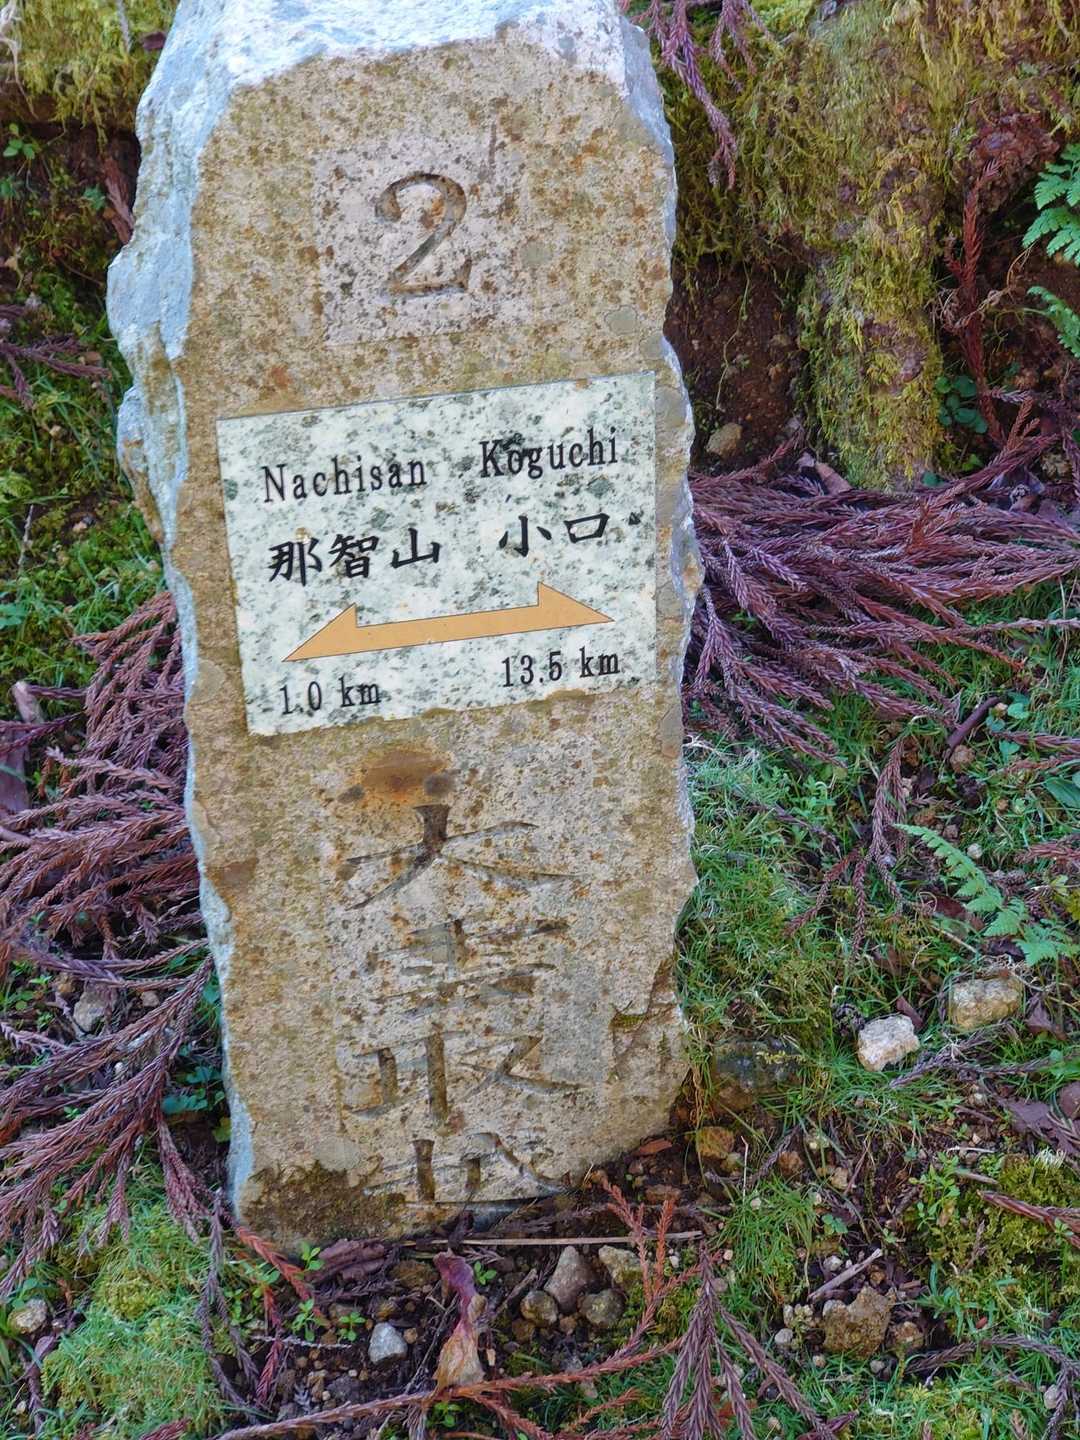 2
Nachisan Koguchi
那智山 小口
1.0 km 13.5 km
大雲取越